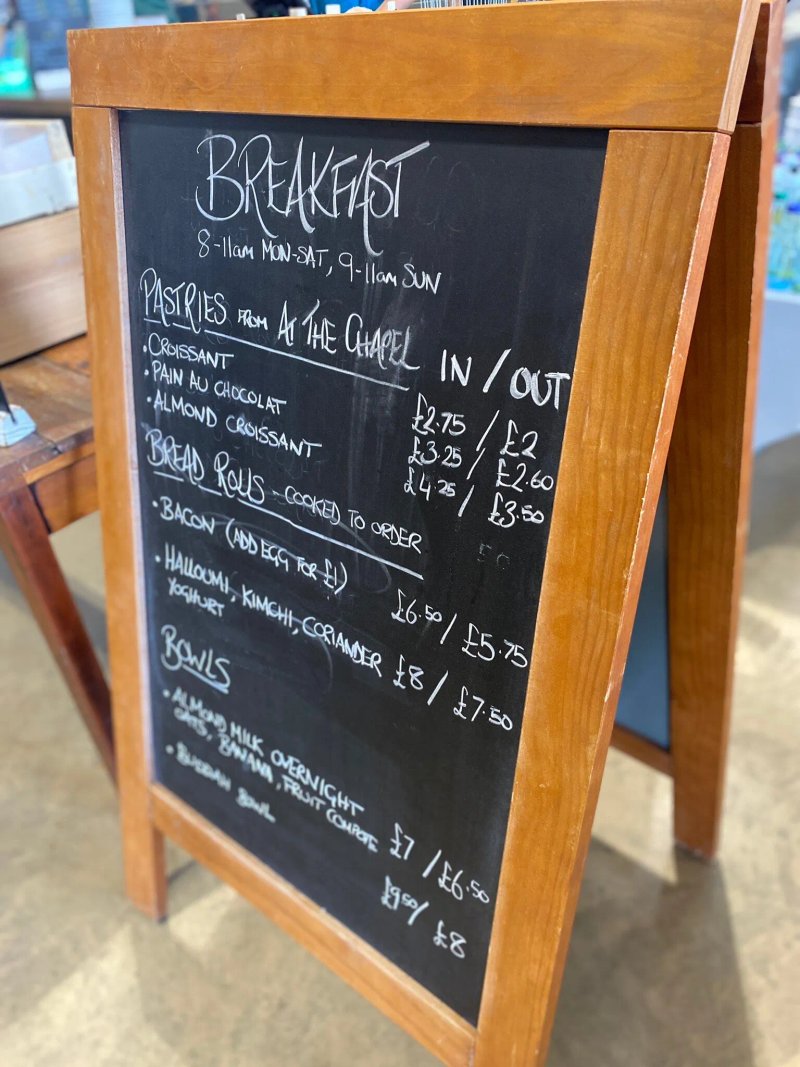 BREAKFAST
8-11am MON-SAT, 9-11am SUN
PASTRIES FROM AT THE CHAPEL
IN / OUT
• CROISSANT £2.75 / £2
• PAIN AU CHOCOLAT £3.25 / £2.60
• ALMOND CROISSANT £4.25 / £3.50
BREAD ROLLS - COOKED TO ORDER
• BACON (ADD EGG FOR £1) £6.50 / £5.75
• HALLOUMI, KIMCHI, CORIANDER £8 / £7.50
YOGHURT
BOWLS
• ALMOND MILK OVERNIGHT
OATS, BANANA, FRUIT COMPOTE £7 / £6.50
• BUDDAH BOWL £9.50 / £8